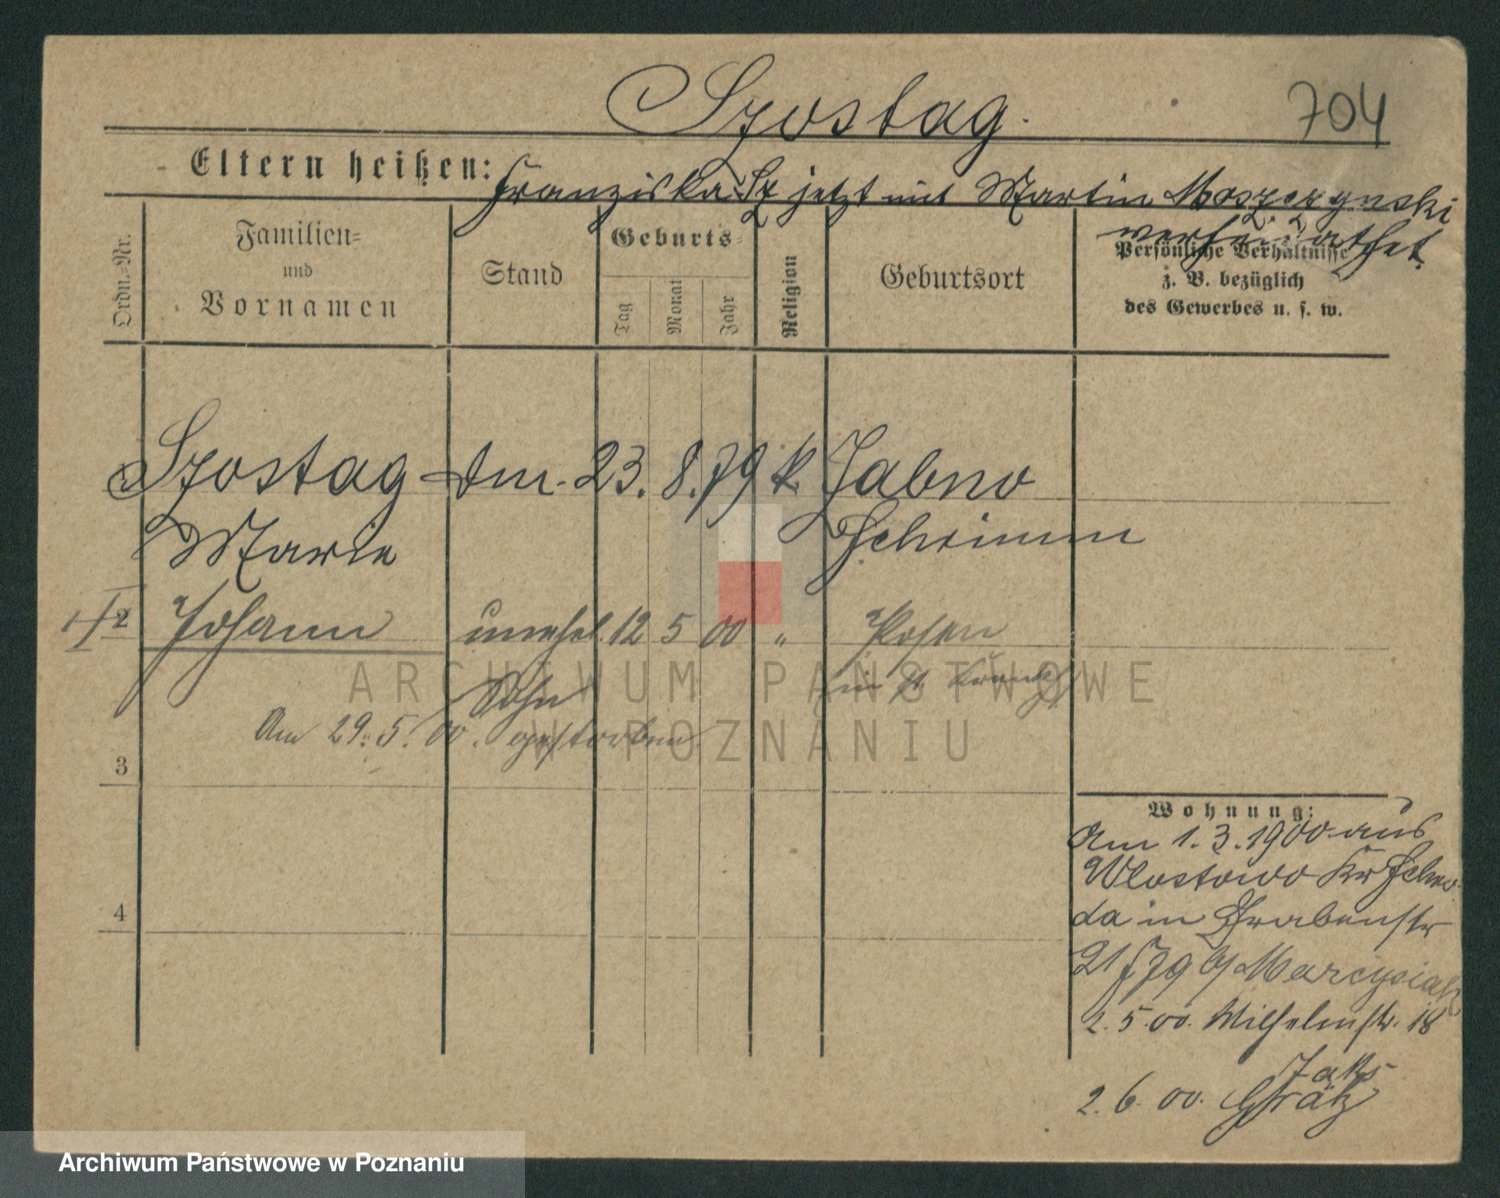 Szostag.
704
Eltern heißen: Franziska Sz jetzt mit Martin Moszczynski
verheirathet
Ordn.-Nr.
Familien-
und
Vornamen
Stand
Geburts-
Tag
Monat
Jahr
Religion
Geburtsort
Persönliche Verhältnisse
z. B. bezüglich
des Gewerbes u. s. w.
Szostag Dm. 23. 8. 79 k. Jabno
Marie Schrimm
2 Johann unehel. 12 5 00 " Posen
Sohn
Am 29. 5. 00. gestorben
3
4
Wohnung:
Am 1. 3. 1900 aus
Wlostowo Kr Schro
da in Grabenstr
21 b/ Marcysiak
2. 5. 00. Wilhelmstr. 18
Jaks
2. 6. 00. Grätz
ARCHIWUM PAŃSTWOWE
W POZNANIU
Archiwum Państwowe w Poznaniu